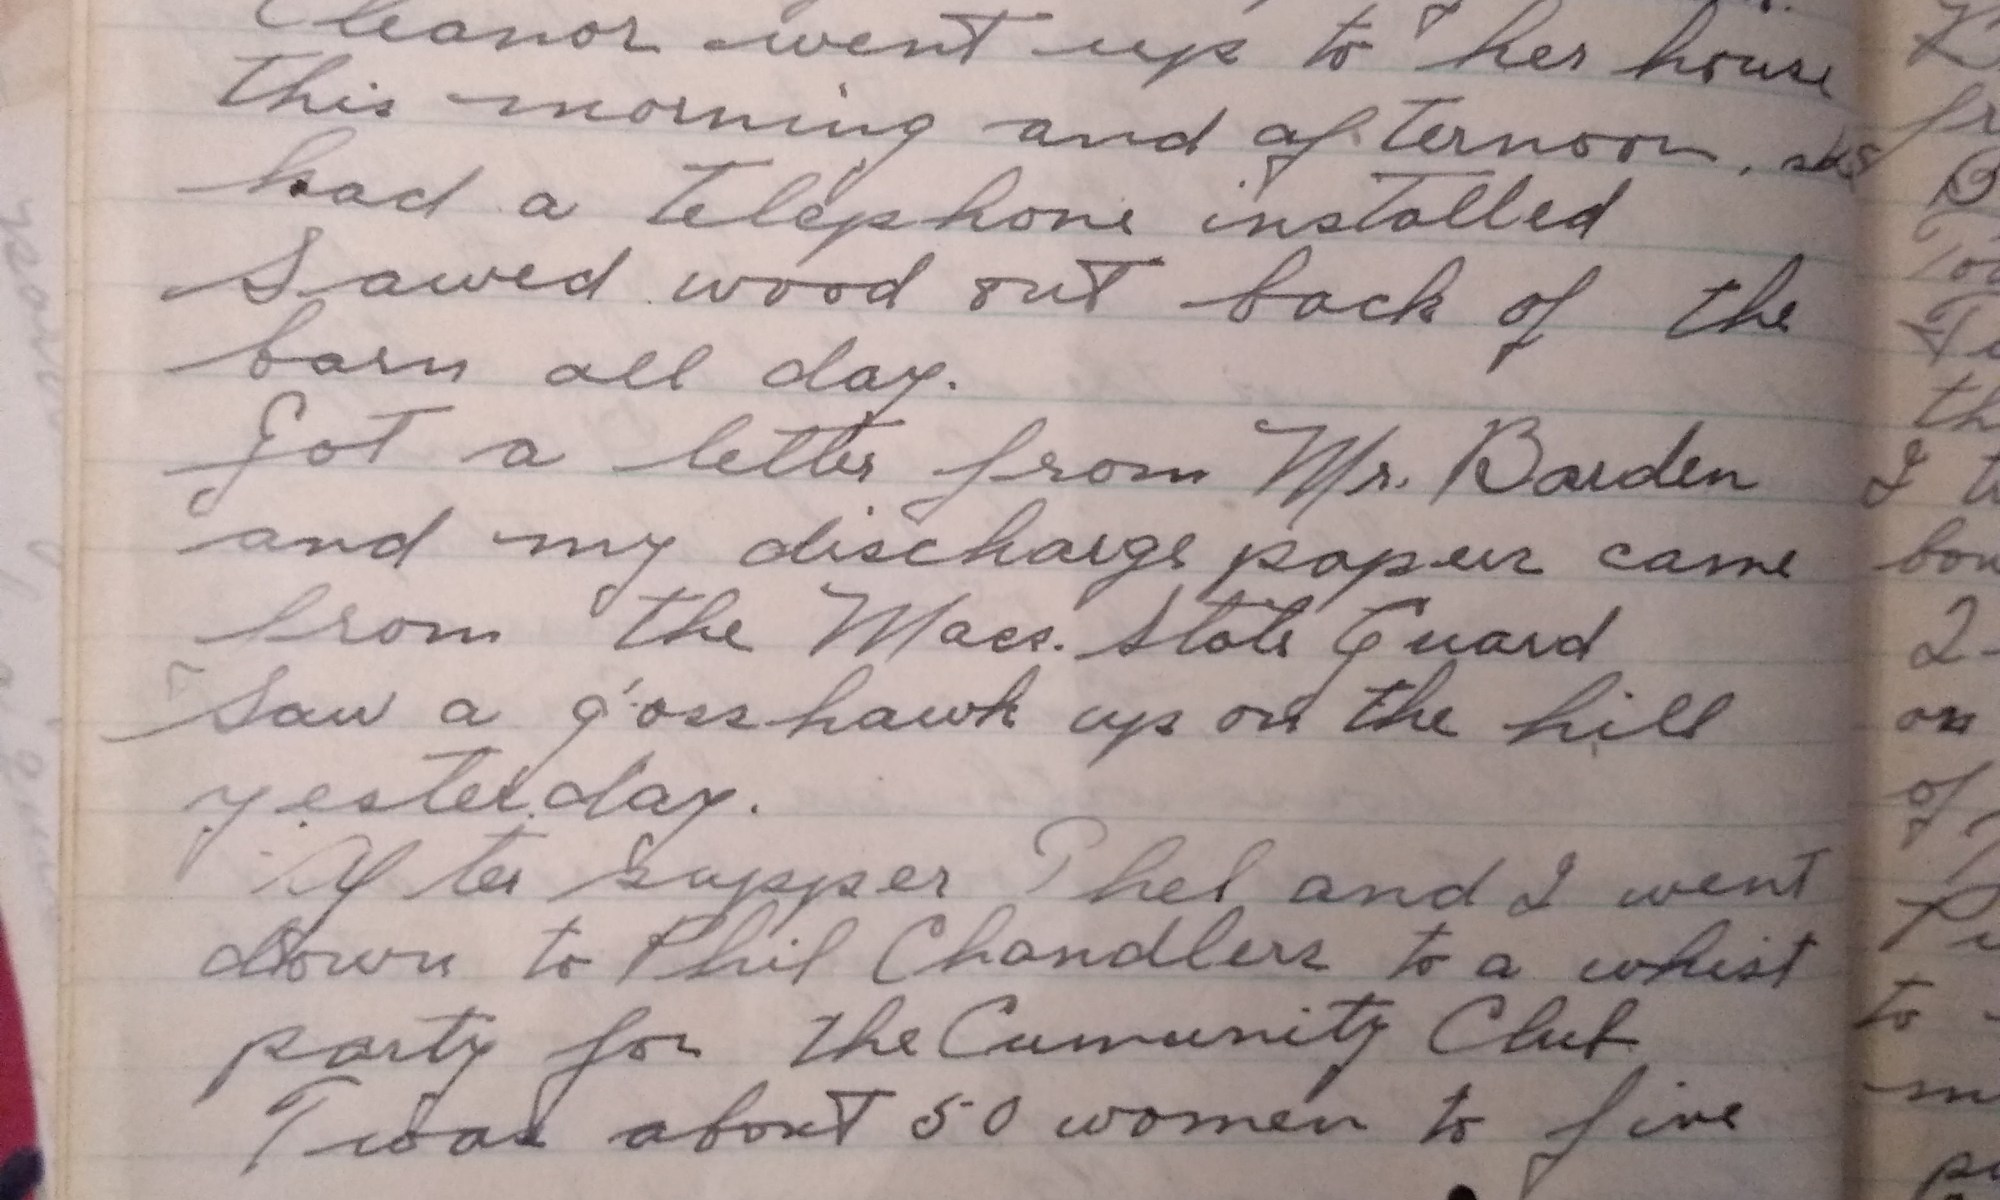 Eleanor went up to her house
this morning and afternoon, she
had a telephone installed
Sawed wood out back of the
barn all day.
Got a letter from Mr. Barden
and my discharge papers came
from the Mass. State Guard
Saw a goss hawk up on the hill
yesterday.
After supper Thel and I went
down to Phil Chandlers to a whist
party for the Cumunity Club
Twas about 50 women to five